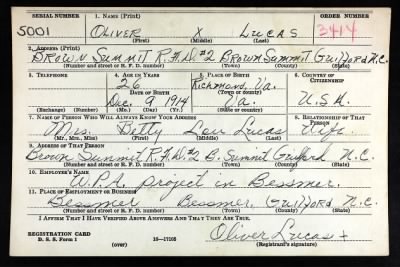 SERIAL NUMBER 1. NAME (Print) ORDER NUMBER
5001 OLIVER X LUCAS 3414
(First) (Middle) (Last)
2. ADDRESS (Print)
BROWN SUMMIT R.F.D. #2 BROWN SUMMIT GUILFORD N.C.
(Number and street or R. F. D. number) (Town) (County) (State)
3. TELEPHONE 4. AGE IN YEARS 5. PLACE OF BIRTH 6. COUNTRY OF CITIZENSHIP
26 Richmond, Va.
DATE OF BIRTH (Town or county)
Dec. 9 1914 Va. U.S.A.
(Exchange) (Number) (Mo.) (Day) (Yr.) (State or country)
7. NAME OF PERSON WHO WILL ALWAYS KNOW YOUR ADDRESS 8. RELATIONSHIP OF THAT PERSON
Mrs. Betty Lou Lucas Wife.
(Mr., Mrs., Miss) (First) (Middle) (Last)
9. ADDRESS OF THAT PERSON
Brown Summit R.F.D. #2 B. Summit Guilford N.C.
(Number and street or R. F. D. number) (Town) (County) (State)
10. EMPLOYER'S NAME
W.P.A. project in Bessmer.
11. PLACE OF EMPLOYMENT OR BUSINESS
Bessmer Bessmer. Guilford N.C.
(Number and street or R. F. D. number) (Town) (County) (State)
I AFFIRM THAT I HAVE VERIFIED ABOVE ANSWERS AND THAT THEY ARE TRUE.
REGISTRATION CARD
D. S. S. Form 1 (over) 16—17105 Oliver Lucas +
(Registrant's signature)